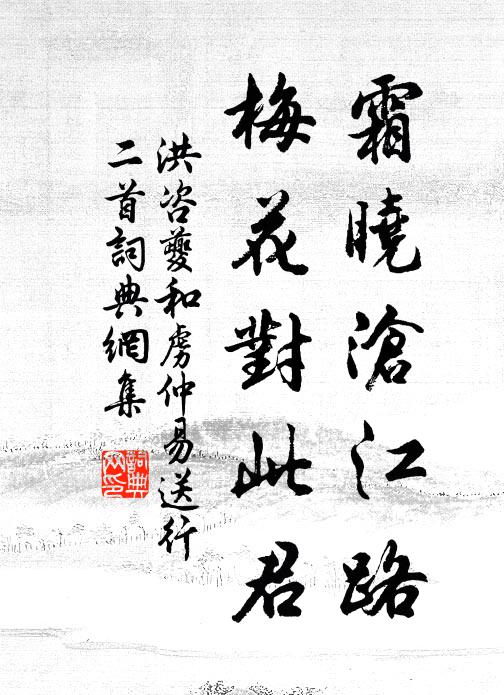 霜曉滄江路
梅花對此君
洪咨夔和虞仲易送行
二首詞典網集
詞典网印